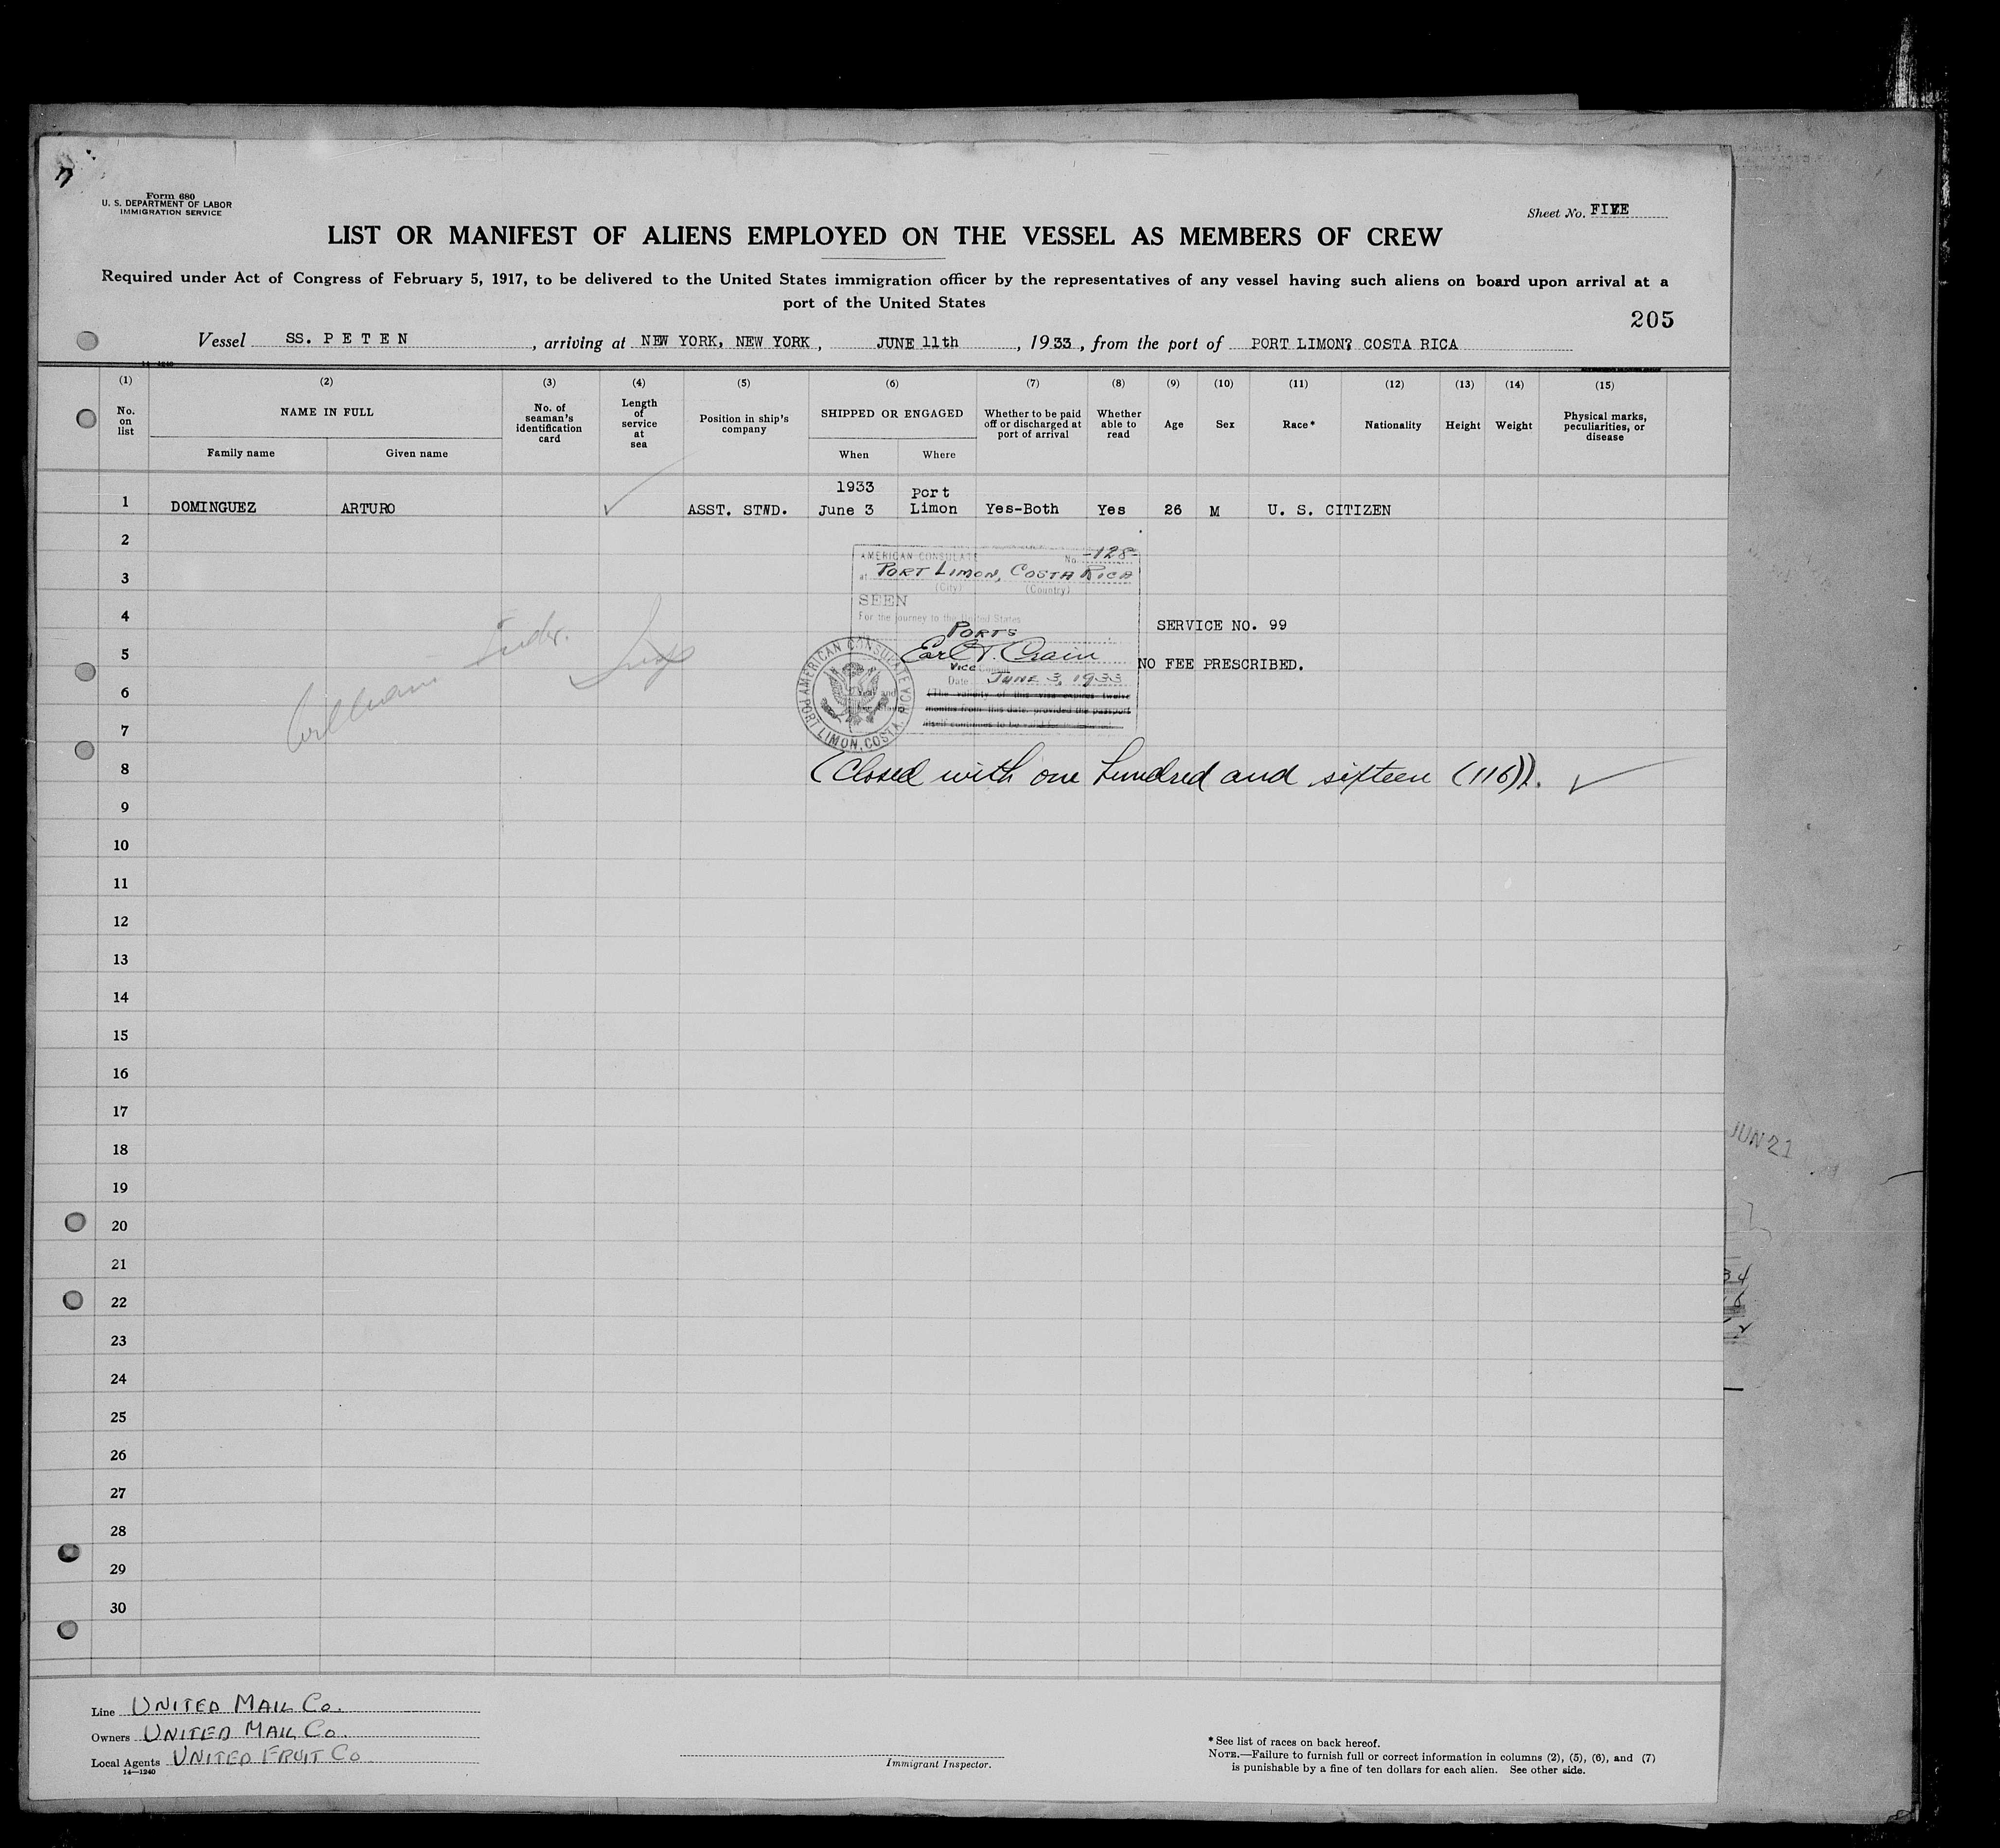 Form 680
U. S. DEPARTMENT OF LABOR
IMMIGRATION SERVICE
Sheet No. FIVE
LIST OR MANIFEST OF ALIENS EMPLOYED ON THE VESSEL AS MEMBERS OF CREW
Required under Act of Congress of February 5, 1917, to be delivered to the United States immigration officer by the representatives of any vessel having such aliens on board upon arrival at a
port of the United States
205
Vessel SS. P E T E N, arriving at NEW YORK, NEW YORK, JUNE 11th, 1933, from the port of PORT LIMON? COSTA RICA
14—1240
(1) (2) (3) (4) (5) (6) (7) (8) (9) (10) (11) (12) (13) (14) (15)
No. on list
NAME IN FULL
Family name Given name
No. of seaman's identification card
Length of service at sea
Position in ship's company
SHIPPED OR ENGAGED
When Where
Whether to be paid off or discharged at port of arrival
Whether able to read
Age
Sex
Race*
Nationality
Height
Weight
Physical marks, peculiarities, or disease
1 DOMINGUEZ ARTURO ASST. STWD. 1933 June 3 Port Limon Yes-Both Yes 26 M U. S. CITIZEN
2
AMERICAN CONSULATE No. -128-
3
at PORT LIMON, COSTA RICA
(City) (Country)
SEEN
4
For the journey to the United States
PORTS
SERVICE NO. 99
5
Earl T. Crain
Vice Consul
NO FEE PRESCRIBED.
Date JUNE 3, 1933
6
(The validity of this visa expires twelve
months from this date, provided the passport
itself continues to be valid
AMERICAN CONSULATE
PORT LIMON, COSTA RICA
7
8 (Closed with one hundred and sixteen (116)).
9
10
11
12
13
14
15
16
17
18
19
20
21
22
23
24
25
26
27
28
29
30
JUN 21
34
Line UNITED MAIL Co.
Owners UNITED MAIL Co.
Local Agents UNITED FRUIT Co
14—1240
Immigrant Inspector.
* See list of races on back hereof.
NOTE.—Failure to furnish full or correct information in columns (2), (5), (6), and (7)
is punishable by a fine of ten dollars for each alien. See other side.